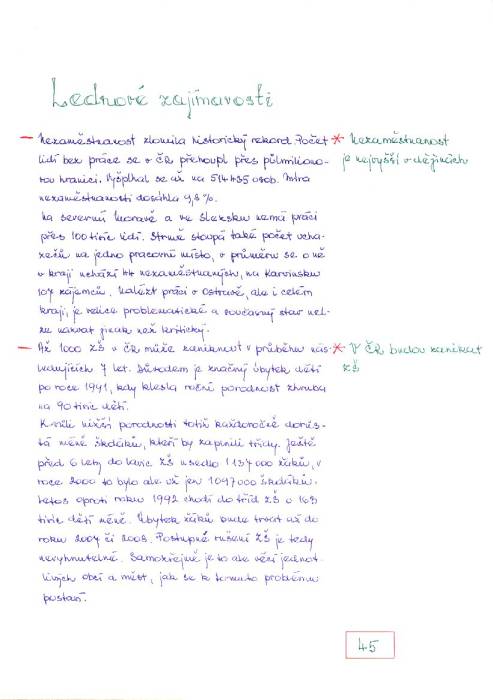 Lednové zajímavosti
- Nezaměstnanost zlomila historický rekord. Počet
lidí bez práce se v ČR přehoupl přes půlmiliono-
vou hranici. Vyšplhal se až na 514435 osob. Míra
nezaměstnanosti dosáhla 9,8 %.
Na severní Moravě a ve Slezsku nemá práci
přes 100 tisíc lidí. Strmě stoupá také počet ucha-
zečů na jedno pracovní místo, v průměru se o ně
v kraji uchází 44 nezaměstnaných, na Karvinsku
107 zájemců. Nalézt práci v Ostravě, ale i celém
kraji, je velice problematické a současný stav nel-
ze nazvat jinak než kritický.
- Až 1000 ZŠ v ČR může zaniknout v průběhu nás-
ledujících 7 let. Důvodem je značný úbytek dětí
po roce 1991, kdy klesla roční porodnost zhruba
na 90 tisíc dětí.
Kvůli nižší porodnosti totiž každoročně dorůs-
tá méně školáků, kteří by zaplnili třídy. Ještě
před 6 lety do lavic ZŠ usedlo 1 137 000 žáků, v
roce 2000 to bylo ale už jen 1 097 000 školáků.
Letos oproti roku 1992 chodí do tříd ZŠ o 163
tisíc dětí méně. Úbytek žáků bude trvat až do
roku 2007 či 2008. Postupné rušení ZŠ je tedy
nevyhnutelné. Samozřejmě je to ale věcí jednot-
livých obcí a měst, jak se k tomuto problému
postaví.
* Nezaměstnanost
je nejvyšší v dějinách
* V ČR budou zanikat
ZŠ
45